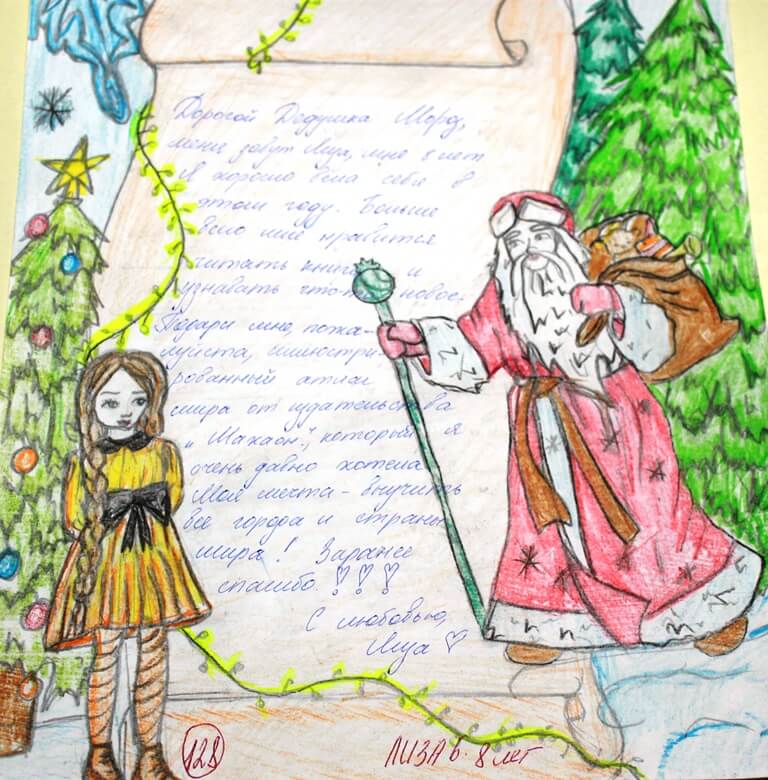 Дорогой Дедушка Мороз,
меня зовут Лиза, мне 8 лет
Я хорошо вела себя в
этом году. Больше
всего мне нравится
читать книги и
узнавать что-то новое.
Подари мне, пожа-
луйста, иллюстри-
рованный атлас
мира от издательства
„Махаон", который я
очень давно хотела
Моя мечта - выучить
все города и страны
мира! Заранее
спасибо!!!
С любовью,
Лиза ♡
128
ЛИЗА Б. 8 лет